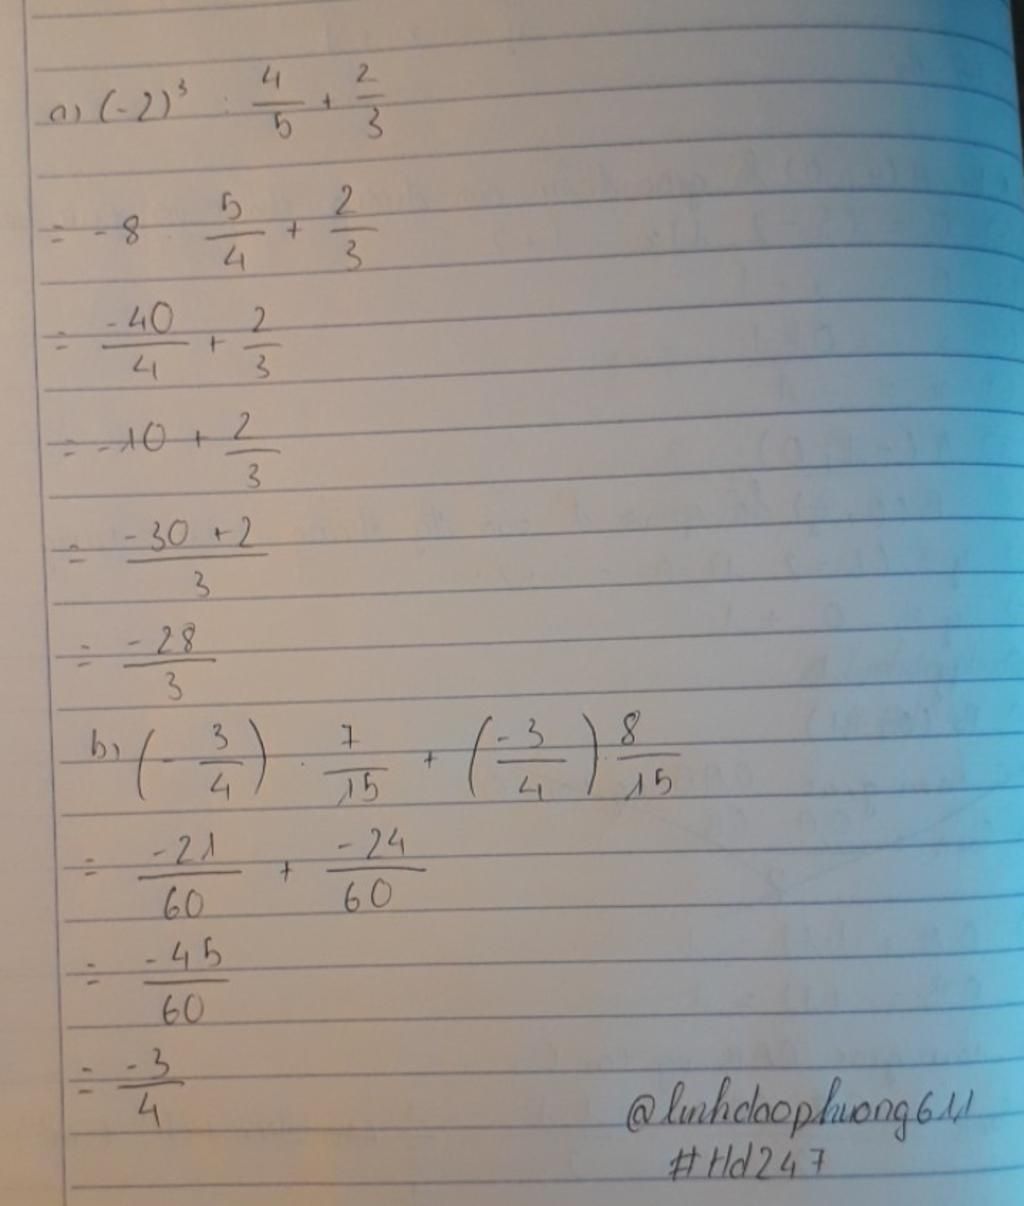 a) (-2)³ : 4/5 + 2/3
= -8 5/4 + 2/3
= -40/4 + 2/3
= -10 + 2/3
= (-30 + 2)/3
= -28/3
b) (-3/4) . 7/15 + (-3/4) . 8/15
= -21/60 + -24/60
= -45/60
= -3/4
@linhdaophuong611
#Hd247